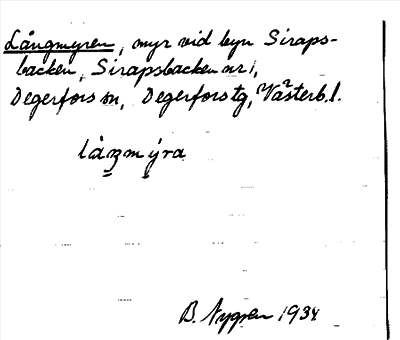 Långmyren, myr vid byn Siraps-
backen, Sirapsbacken nr 1,
Degerfors sn, Degerfors tg, Västerb. l.
làŋmýra
B. Nygren 1934